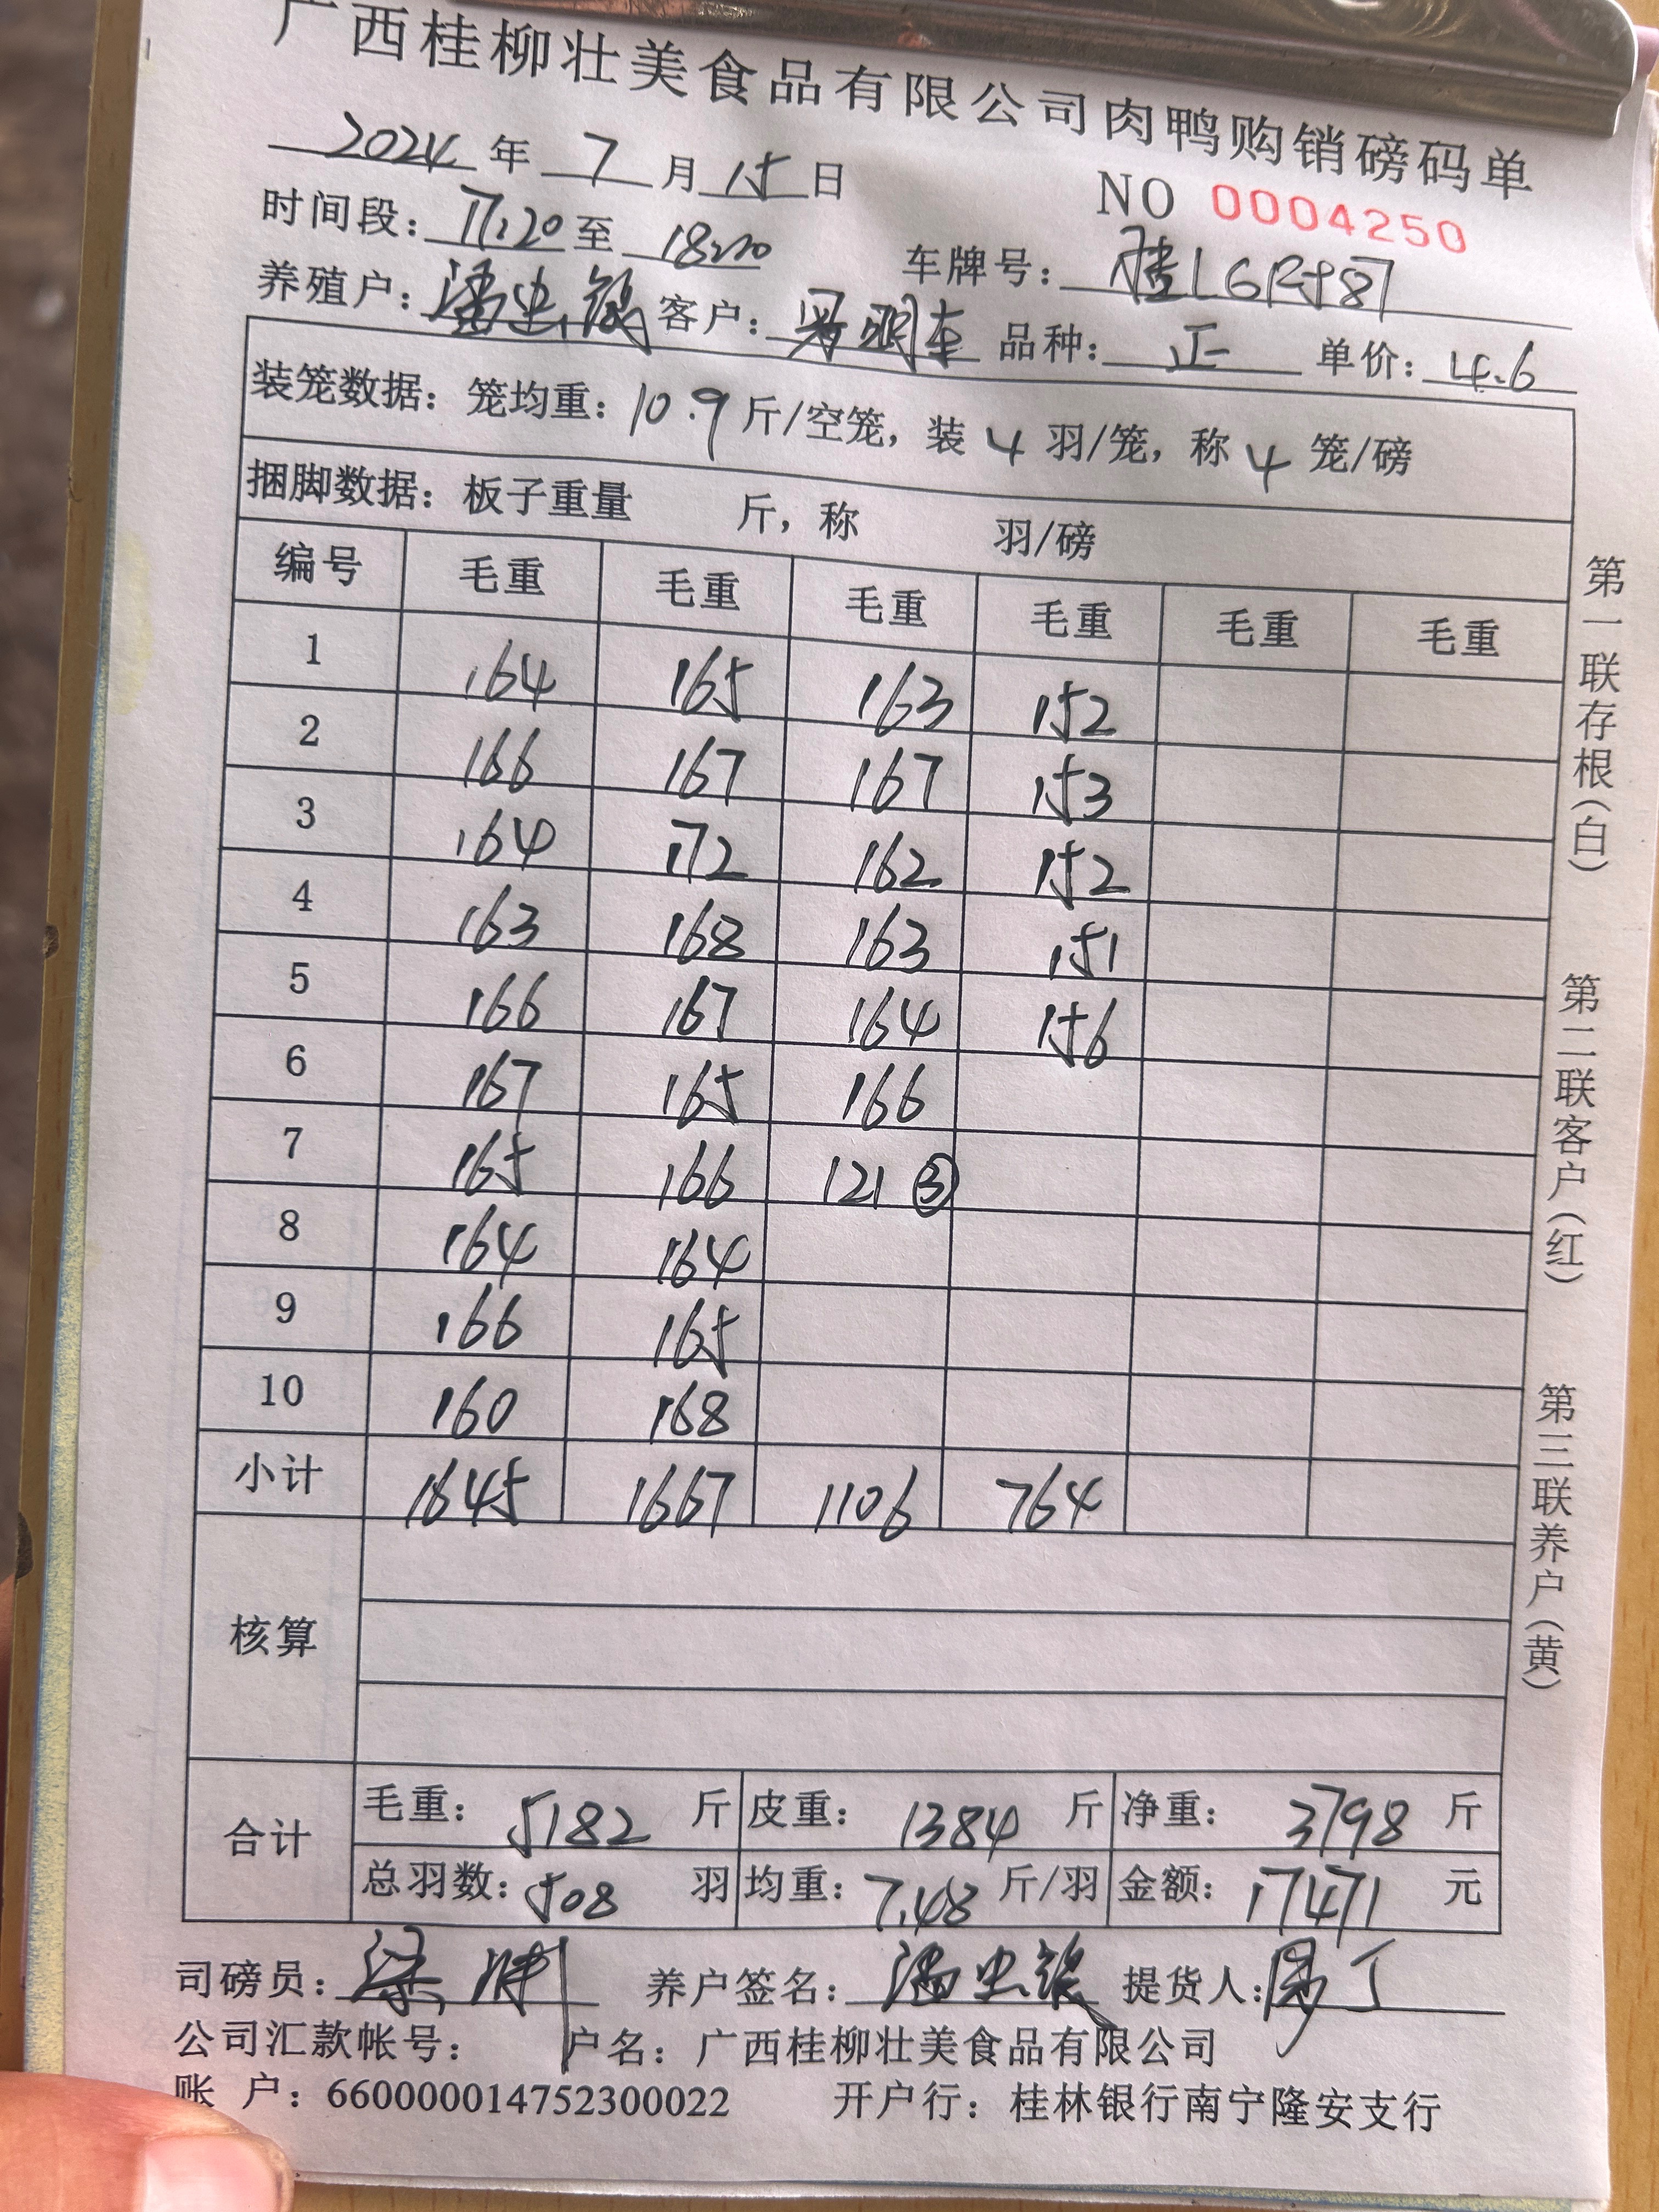 广西桂柳壮美食品有限公司肉鸭购销磅码单
2024 年 7 月 15 日 NO 0004250
时间段: 17:20 至 18:20 车牌号: 桂L
养殖户: 潘 客户: 明车 品种: 正 单价: 4.6
装笼数据: 笼均重: 10.9 斤/空笼, 装 4 羽/笼, 称 4 笼/磅
捆脚数据: 板子重量 斤, 称 羽/磅
编号 毛重 毛重 毛重 毛重 毛重 毛重
1 164 165 163 152
2 166 167 167 153
3 164 172 162 152
4 163 168 163 151
5 166 167 164 156
6 167 165 166
7 165 166 121 ③
8 164 164
9 166 165
10 160 168
小计 1645 1667 1106 764
核算
合计 毛重: 5182 斤 皮重: 1384 斤 净重: 3798 斤
总羽数: 508 羽 均重: 7.48 斤/羽 金额: 17471 元
司磅员: 梁 养户签名: 潘 提货人:
公司汇款帐号: 户名: 广西桂柳壮美食品有限公司
账 户: 660000014752300022 开户行: 桂林银行南宁隆安支行
第一联存根(白)
第二联客户(红)
第三联养户(黄)